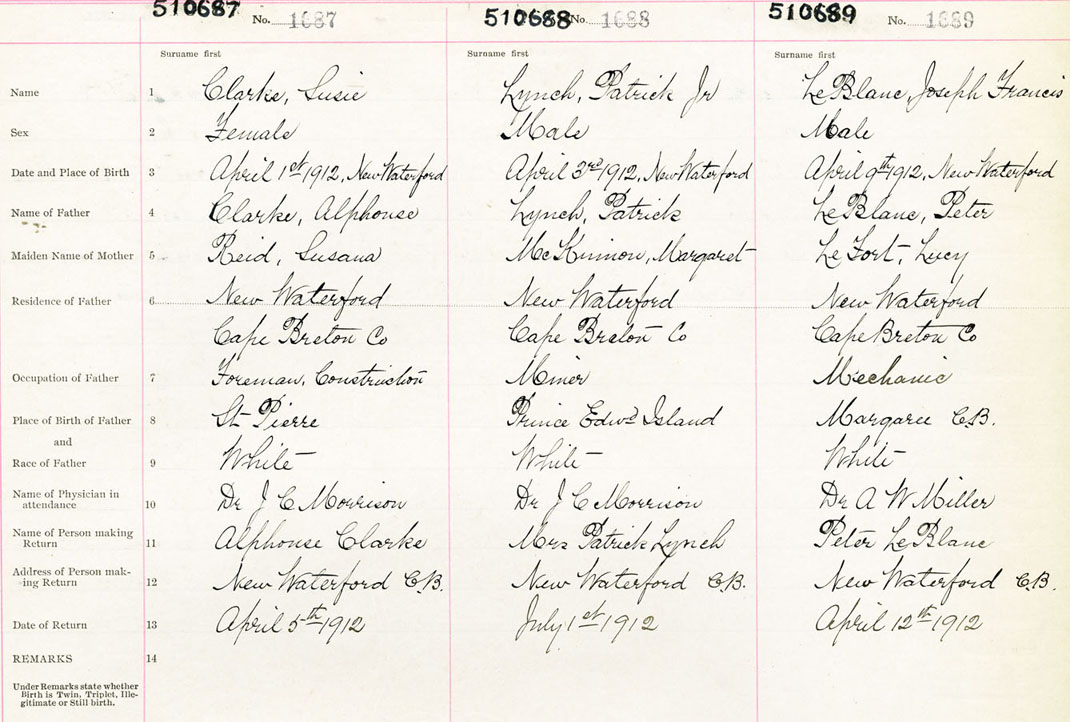 510687 No. 1687 510688 No. 1688 510689 No. 1689
Surname first Surname first Surname first
Name 1 Clarke, Susie Lynch, Patrick Jr Le Blanc, Joseph Francis
Sex 2 Female Male Male
Date and Place of Birth 3 April 1st 1912, New Waterford April 3rd 1912, New Waterford April 9th 1912, New Waterford
Name of Father 4 Clarke, Alphouse Lynch, Patrick Le Blanc, Peter
Maiden Name of Mother 5 Reid, Susana McKinnon, Margaret Le Fort, Lucy
Residence of Father 6 New Waterford New Waterford New Waterford
Cape Breton Co Cape Breton Co Cape Breton Co
Occupation of Father 7 Foreman, Construction Miner Mechanic
Place of Birth of Father 8 St Pierre Prince Edwd Island Margaree C.B.
and
Race of Father 9 White White White
Name of Physician in
attendance 10 Dr J C Morrison Dr J C Morrison Dr A W Miller
Name of Person making
Return 11 Alphouse Clarke Mrs Patrick Lynch Peter Le Blanc
Address of Person mak-
ing Return 12 New Waterford C.B. New Waterford C.B. New Waterford C.B.
Date of Return 13 April 5th 1912 July 1st 1912 April 12th 1912
REMARKS 14
Under Remarks state whether
Birth is Twin, Triplet, Ille-
gitimate or Still birth.